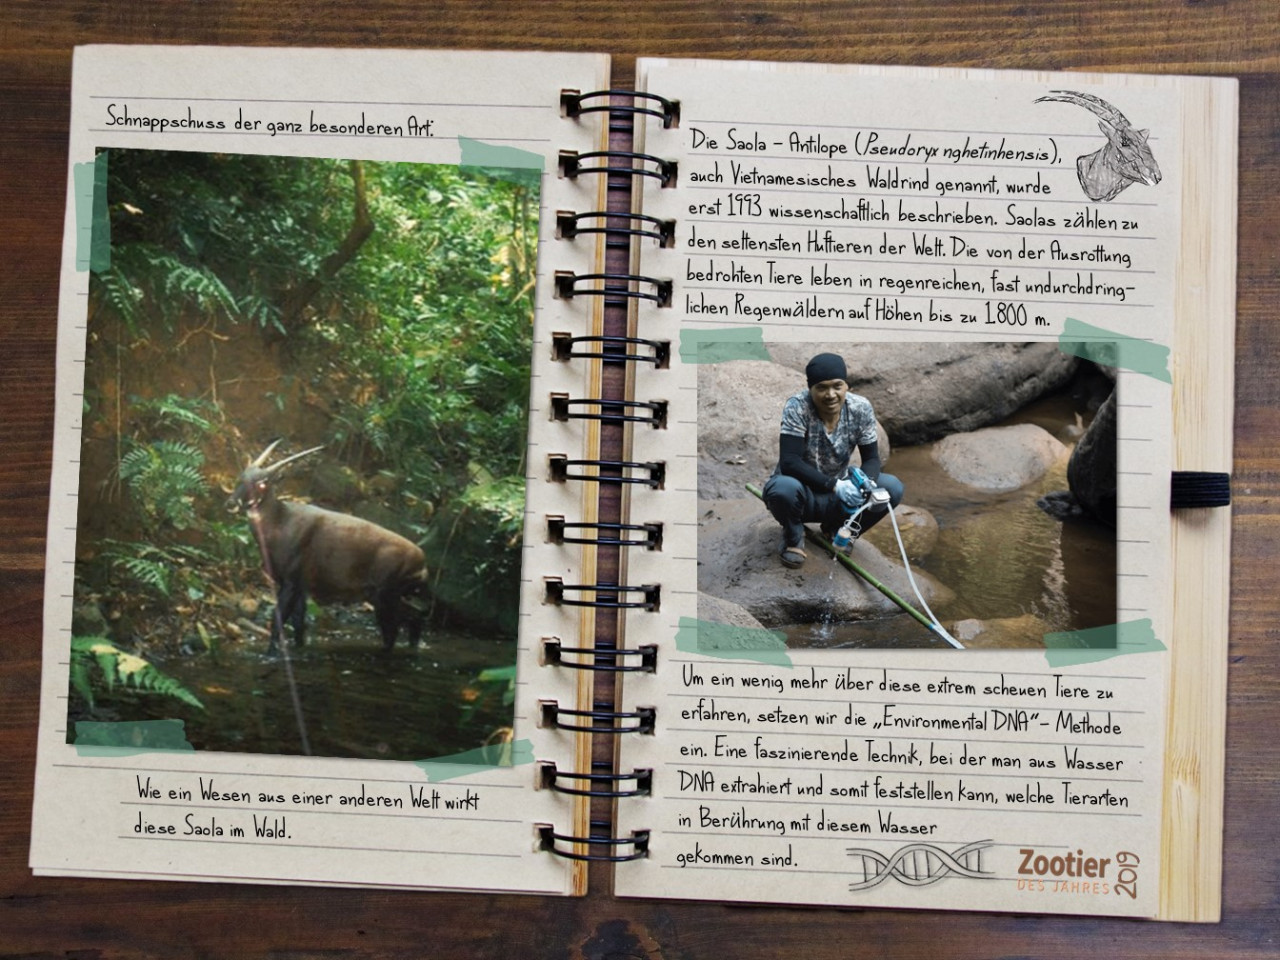 Schnappschuss der ganz besonderen Art:
Wie ein Wesen aus einer anderen Welt wirkt
diese Saola im Wald.
Die Saola - Antilope (Pseudoryx nghetinhensis),
auch Vietnamesisches Waldrind genannt, wurde
erst 1993 wissenschaftlich beschrieben. Saolas zählen zu
den seltensten Huftieren der Welt. Die von der Ausrottung
bedrohten Tiere leben in regenreichen, fast undurchdring-
lichen Regenwäldern auf Höhen bis zu 1.800 m.
Um ein wenig mehr über diese extrem scheuen Tiere zu
erfahren, setzen wir die „Environmental DNA“- Methode
ein. Eine faszinierende Technik, bei der man aus Wasser
DNA extrahiert und somit feststellen kann, welche Tierarten
in Berührung mit diesem Wasser
gekommen sind.
Zootier
DES JAHRES
2019